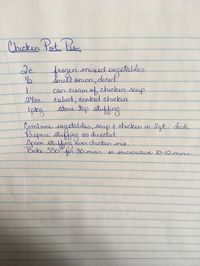 Chicken Pot Pie
2c frozen mixed vegetables
½ small onion, diced
1 can cream of chicken soup
2 cubed, cooked chicken
1 pkg stove top stuffing
Combine vegetables, soup & chicken in 2 qt. dish.
Prepare stuffing as directed.
Spoon stuffing over chicken mix.
Bake 350° for 30 mins or microwave 10-12 mins